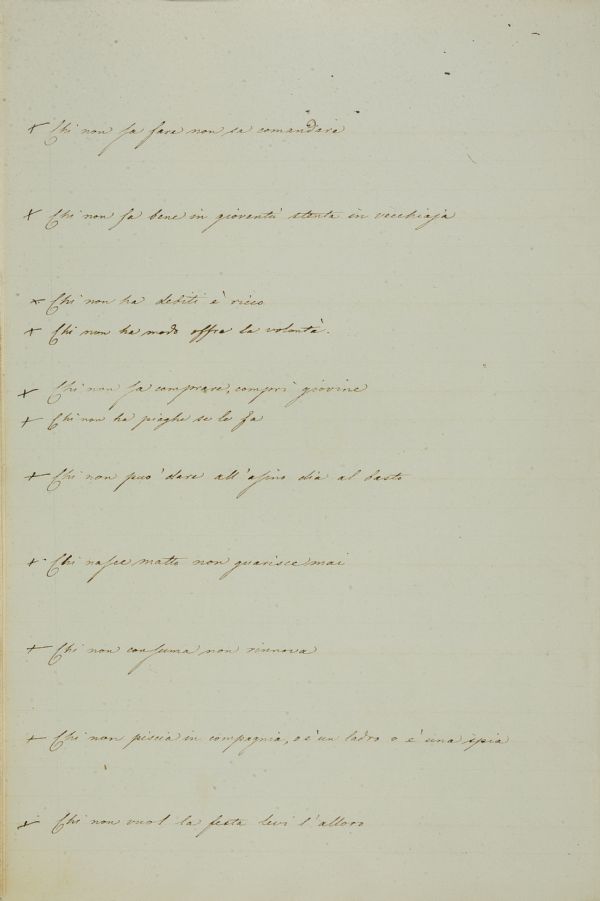 + Chi non sa fare non sa comandare
+ Chi non fa bene in gioventù stenta in vecchiaja
+ Chi non ha debiti è ricco
+ Chi non ha modo offra la volontà.
+ Chi non sa comprare, compri giovine
+ Chi non ha piaghe se le fa
+ Chi non può dare all'asino dia al basto
+ Chi nasce matto non guarisce mai
+ Chi non consuma non rinnova
+ Chi non piscia in compagnia, o è un ladro o è una spia
+ Chi non vuol la festa levi l'alloro